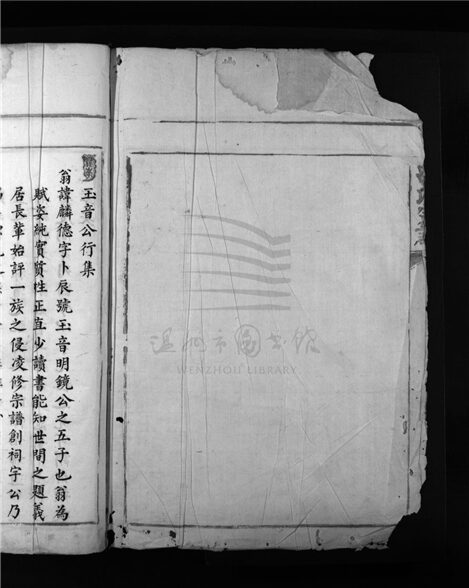 玉音公行集
翁諱麟德字卜辰號玉音明鏡公之五子也翁為
賦姿純實質性正直少讀書能知世間之題義
居長輩始評一族之侵凌修宗譜創祠宇公乃
温州市图书馆
WENZHOU LIBRARY